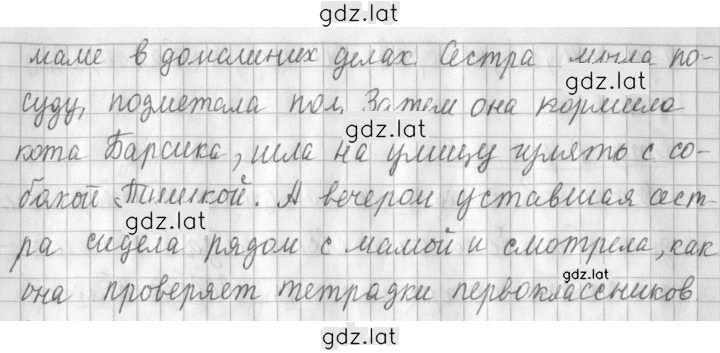 gdz.lat
маме в домашних делах. Сестра мыла по-
gdz.lat
суду, подметала пол. Затем она кормила
gdz.lat
кота Барсика, шла на улицу гулять с со-
бакой Тишкой. А вечером уставшая сест-
gdz.lat
ра сидела рядом с мамой и смотрела, как
gdz.lat
она проверяет тетрадки первоклассников
gdz.lat